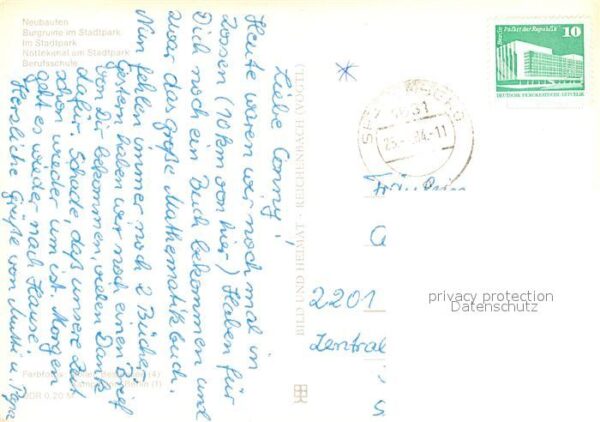 Neubauten
Burgruine im Stadtpark
Im Stadtpark
Nottekanal am Stadtpark
Berufsschule
Liebe Conny!
Heute waren wir noch mal in
Zossen (10 km von hier). Haben für
Dich noch ein Buch bekommen und
zwar das große Mathematikbuch.
Nun fehlen immer noch 2 Bücher.
Gestern haben wir noch einen Brief
von Dir bekommen, vielen Dank
dafür. Schade, daß unsere Zeit
schon wieder um ist. Morgen
geht es wieder nach Hause.
Herzliche Grüße von Mutti u. Papa
BILD UND HEIMAT · REICHENBACH (VOGTL)
Farbfotos
Berlin (1)
DDR 0,20 M
1631
-11
Berlin Palast der Republik
10
DEUTSCHE DEMOKRATISCHE REPUBLIK
2201
Zentral
privacy protection
Datenschutz